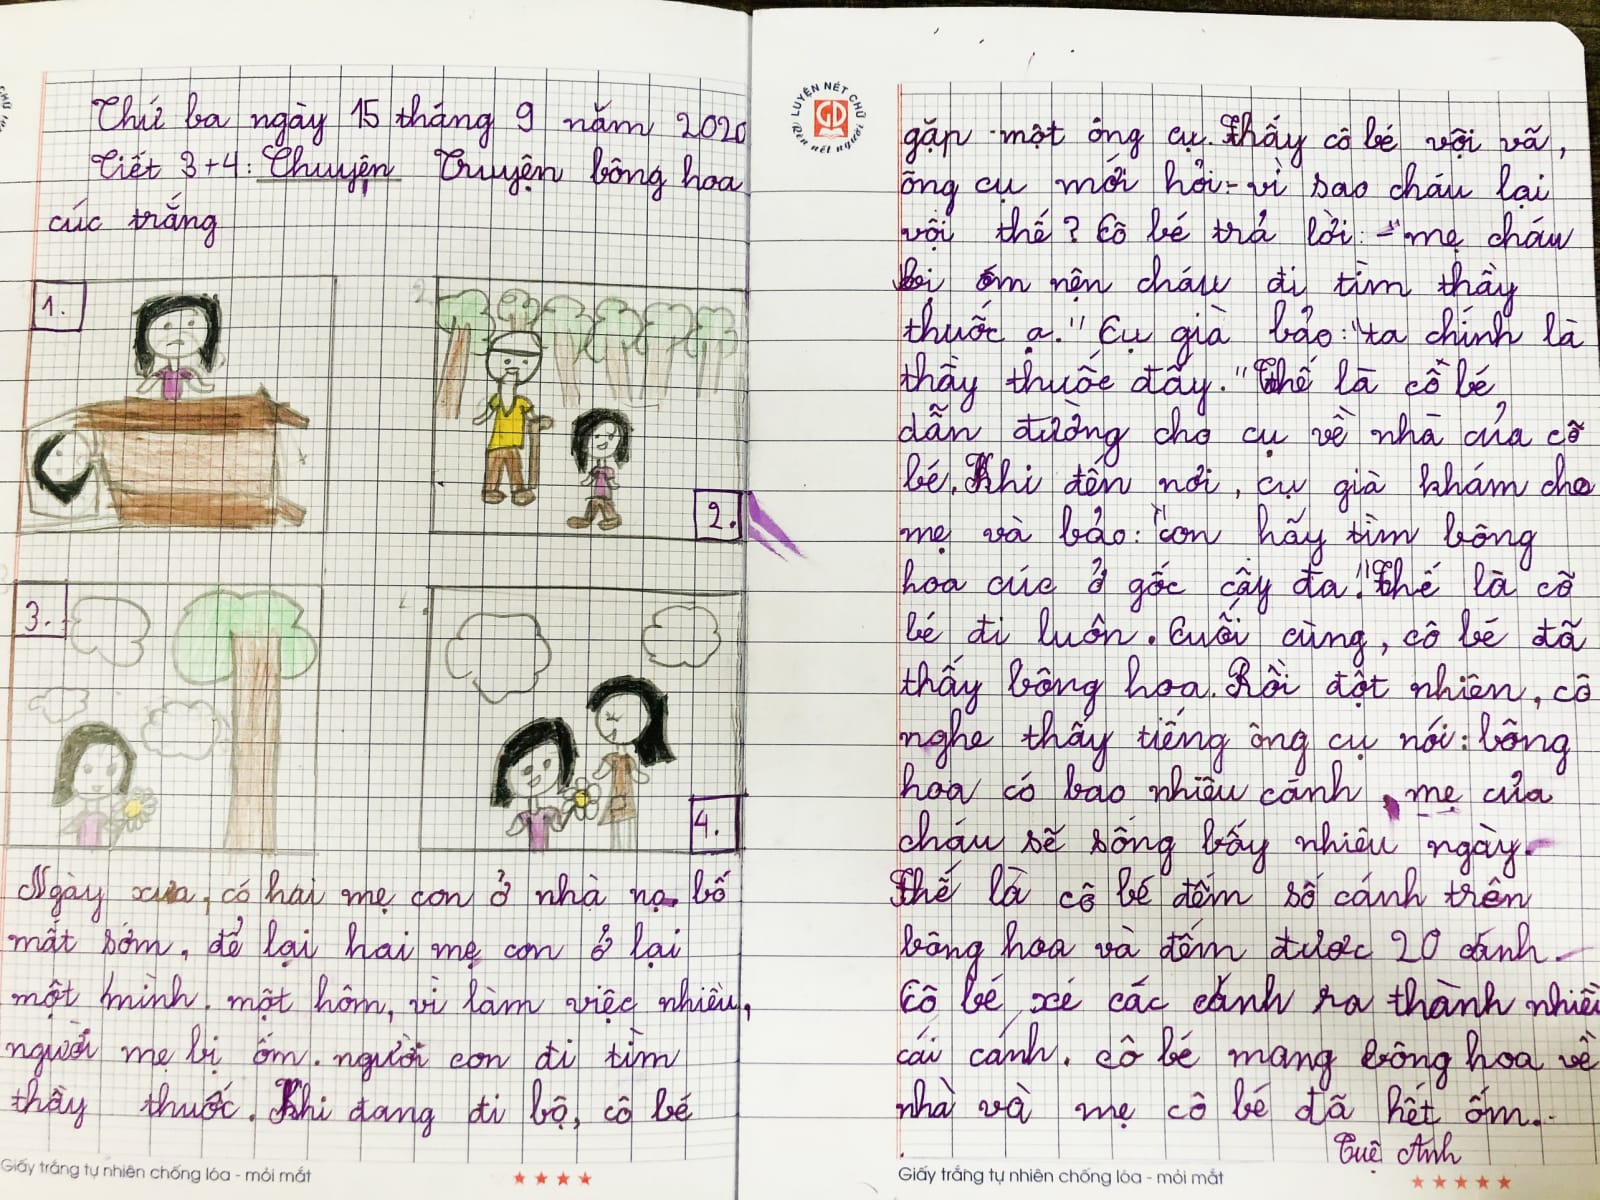 Thứ ba ngày 15 tháng 9 năm 2020
Tiết 3+4: Chuyện Truyện bông hoa
cúc trắng
1.
2.
3.
4.
Ngày xưa, có hai mẹ con ở nhà nọ. bố
mất sớm, để lại hai mẹ con ở lại
một mình. một hôm, vì làm việc nhiều,
người mẹ bị ốm. người con đi tìm
thầy thuốc. Khi đang đi bộ, cô bé
Giấy trắng tự nhiên chống lóa - mỏi mắt
LUYỆN NÉT CHỮ
GD
Rèn nết người
gặp một ông cụ. Thấy cô bé vội vã,
ông cụ mới hỏi - vì sao cháu lại
vội thế? Cô bé trả lời: - "mẹ cháu
bị ốm nên cháu đi tìm thầy
thuốc ạ." Cụ già bảo: "ta chính là
thầy thuốc đây." Thế là cô bé
dẫn đường cho cụ về nhà của cô
bé. Khi đến nơi, cụ già khám cho
mẹ và bảo: "con hãy tìm bông
hoa cúc ở gốc cây đa." Thế là cô
bé đi luôn. Cuối cùng, cô bé đã
thấy bông hoa. Rồi đột nhiên, cô
nghe thấy tiếng ông cụ nói: bông
hoa có bao nhiêu cánh, mẹ của
cháu sẽ sống bấy nhiêu ngày.
Thế là cô bé đếm số cánh trên
bông hoa và đếm được 20 cánh.
Cô bé xé các cánh ra thành nhiều
cái cánh. cô bé mang bông hoa về
nhà và mẹ cô bé đã hết ốm..
Tuệ Anh
Giấy trắng tự nhiên chống lóa - mỏi mắt